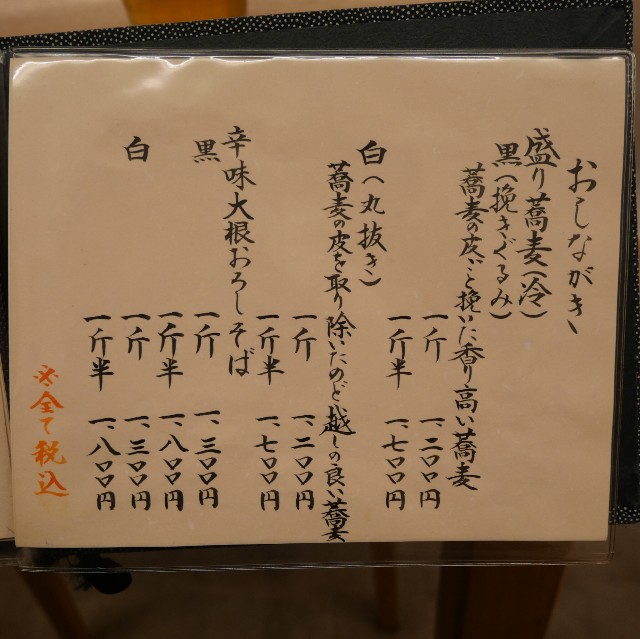 おしながき
盛り蕎麦(冷)
黒(挽きぐるみ)
蕎麦の皮ごと挽いた香り高い蕎麦
一斤 一、二〇〇円
一斤半 一、七〇〇円
白(丸抜き)
蕎麦の皮を取り除いたのど越しの良い蕎麦
一斤 一、二〇〇円
一斤半 一、七〇〇円
辛味大根おろしそば
黒 一斤 一、三〇〇円
一斤半 一、八〇〇円
白 一斤 一、三〇〇円
一斤半 一、八〇〇円
※全て税込